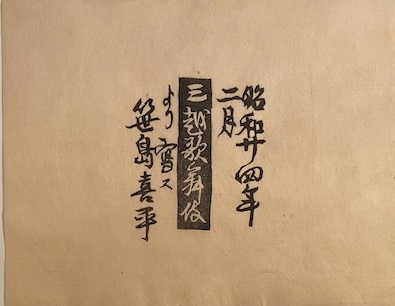 昭和廿四年
二月
三越歌舞伎
より寫ス
笹島喜平